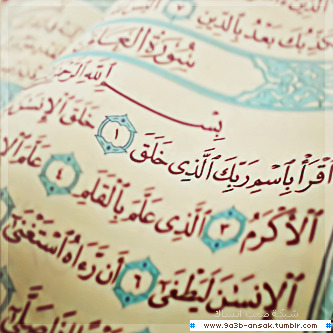 يُكَذِّبُكَ بَعْدُ بِٱلدِّينِ
سُورَةُ العَلَقِ
بِسْمِ ٱللَّهِ ٱلرَّحْمَٰنِ
ٱقْرَأْ بِٱسْمِ رَبِّكَ ٱلَّذِى خَلَقَ ١ خَلَقَ ٱلْإِنسَٰنَ
ٱلْأَكْرَمُ ٣ ٱلَّذِى عَلَّمَ بِٱلْقَلَمِ ٤ عَلَّمَ ٱلْإِ
ٱلْإِنسَٰنَ لَيَطْغَىٰٓ ٦ أَن رَّءَاهُ ٱسْتَغْنَىٰٓ
# www.9a3b-ansak.tumblr.com #